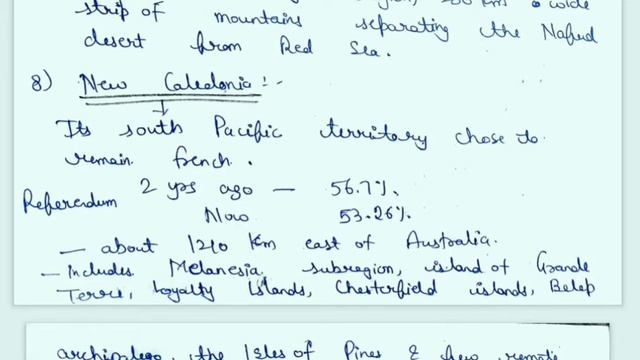 strip of mountains separating the Nafud
desert from Red Sea.
8) New Caledonia :-
Its south Pacific territory chose to
remain french.
Referendum 2 yrs ago — 56.7%.
Now 53.26%.
— about 1210 Km east of Australia.
— Includes Melanesia subregion, island of Grande
Terre, Loyalty Islands, Chesterfield islands, Belep
archipelago, the Isles of Pines & few remote